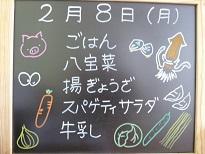 2月8日(月)
ごはん
八宝菜
揚ぎょうざ
スパゲティサラダ
牛乳し